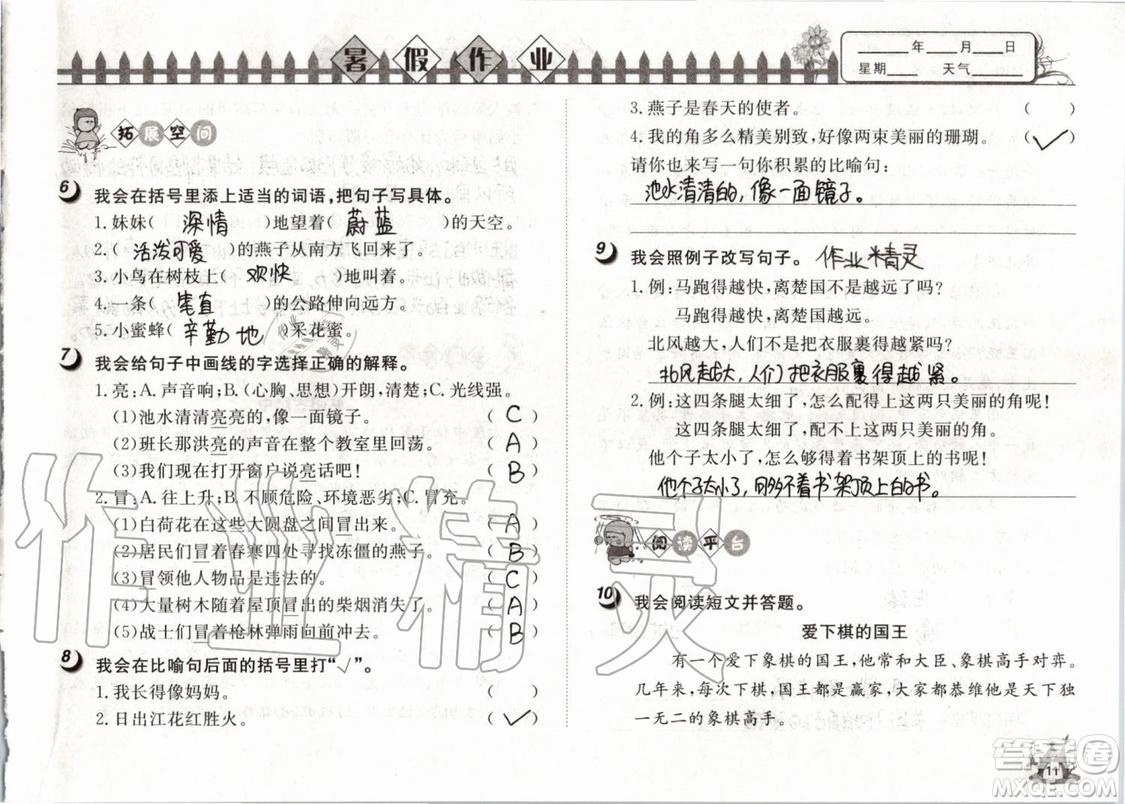 暑假作业
____年____月____日
星期____ 天气____
拓展空间
6 我会在括号里添上适当的词语,把句子写具体。
1.妹妹( 深情 )地望着( 蔚蓝 )的天空。
2.( 活泼可爱 )的燕子从南方飞回来了。
3.小鸟在树枝上( 欢快 )地叫着。
4.一条( 笔直 )的公路伸向远方。
5.小蜜蜂( 辛勤地 )采花蜜。
7 我会给句子中画线的字选择正确的解释。
1.亮:A.声音响;B.(心胸、思想)开朗,清楚;C.光线强。
(1)池水清清亮亮的,像一面镜子。 ( C )
(2)班长那洪亮的声音在整个教室里回荡。 ( A )
(3)我们现在打开窗户说亮话吧! ( B )
2.冒:A.往上升;B.不顾危险、环境恶劣;C.冒充。
(1)白荷花在这些大圆盘之间冒出来。 ( A )
(2)居民们冒着春寒四处寻找冻僵的燕子。 ( B )
(3)冒领他人物品是违法的。 ( C )
(4)大量树木随着房屋顶出的柴烟消失了。 ( A )
(5)战士们冒着枪林弹雨向前冲去。 ( B )
8 我会在比喻句后面的括号里打“√”。
1.我长得像妈妈。 ( )
2.日出江花红胜火。 ( √ )
3.燕子是春天的使者。 ( )
4.我的角多么精美别致,好像两束美丽的珊瑚。 ( √ )
请你也来写一句你积累的比喻句:
池水清清的,像一面镜子。
9 我会照例子改写句子。 作业精灵
1.例:马跑得越快,离楚国不是越远了吗?
马跑得越快,离楚国越远。
北风越大,人们不是把衣服裹得越紧吗?
北风越大,人们把衣服裹得越紧。
2.例:这四条腿太细了,怎么配得上这两只美丽的角呢!
这四条腿太细了,配不上这两只美丽的角。
他个子太小了,怎么能够着书架顶上的书呢!
他个子太小了,够不着书架顶上的书。
阅读平台
10 我会阅读短文并答题。
爱下棋的国王
有一个爱下象棋的国王,他经常和大臣、象棋高手对弈。
几年来,每次下棋,国王都是赢家,大家都恭维他是天下独
一无二的象棋高手。
作业精灵
答案圈
MXQE.COM
11